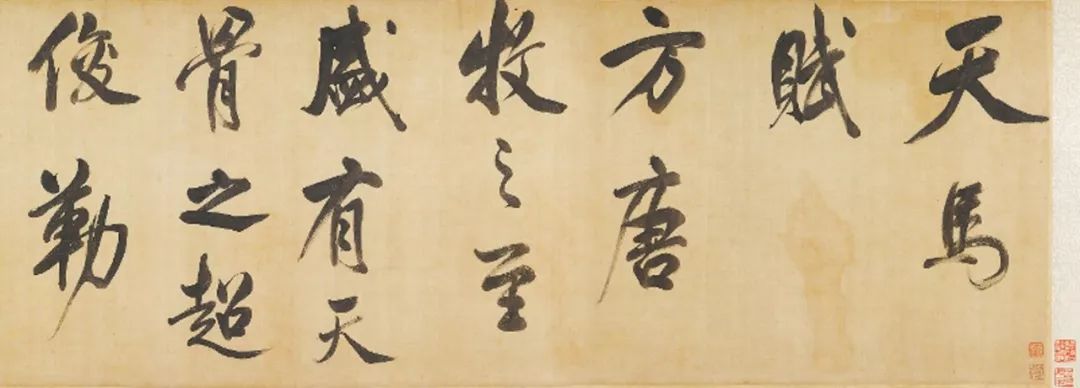 天馬
賦
方唐
牧之至
盛有天
骨之超
俊勒